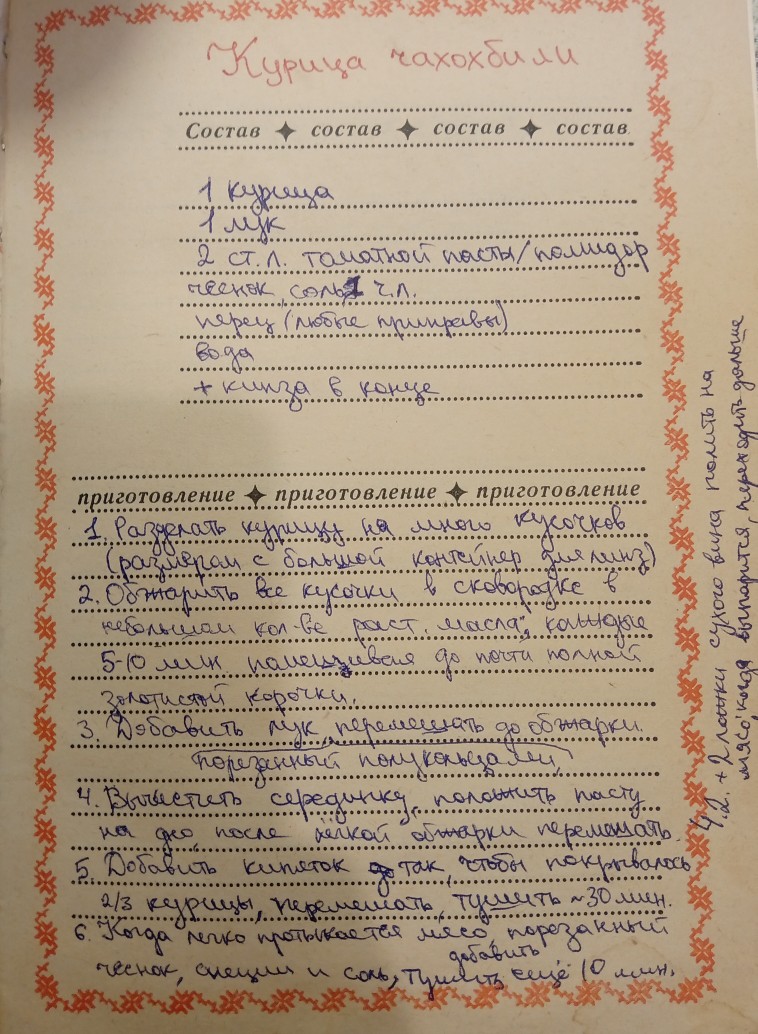 Курица чахохбили
Состав ✦ состав ✦ состав ✦ состав
1 курица
1 лук
2 ст.л. томатной пасты/помидор
чеснок, соль 1 ч.л.
перец (любые приправы)
вода
+ кинза в конце
приготовление ✦ приготовление ✦ приготовление
1. Разделать курицу на много кусочков
(размером с большой контейнер для линз)
2. Обжарить все кусочки в сковородке в
небольшом кол-ве раст. масла, каждые
5-10 мин. помешивая до почти полной
золотистой корочки.
3. Добавить лук, перемешать до обжарки.
порезанный полукольцами,
4. Вычистить серединку, положить пасту
на дно, после лёгкой обжарки перемешать.
5. Добавить кипяток так, чтобы покрывалось
2/3 курицы, перемешать, тушить ~30 мин.
6. Когда легко протыкается мясо, порезанный
добавить
чеснок, специи и соль, тушить ещё 10 мин.
4.2. + 2 ложки сухого вина полить на
мясо, когда выпарится, переходить дальше